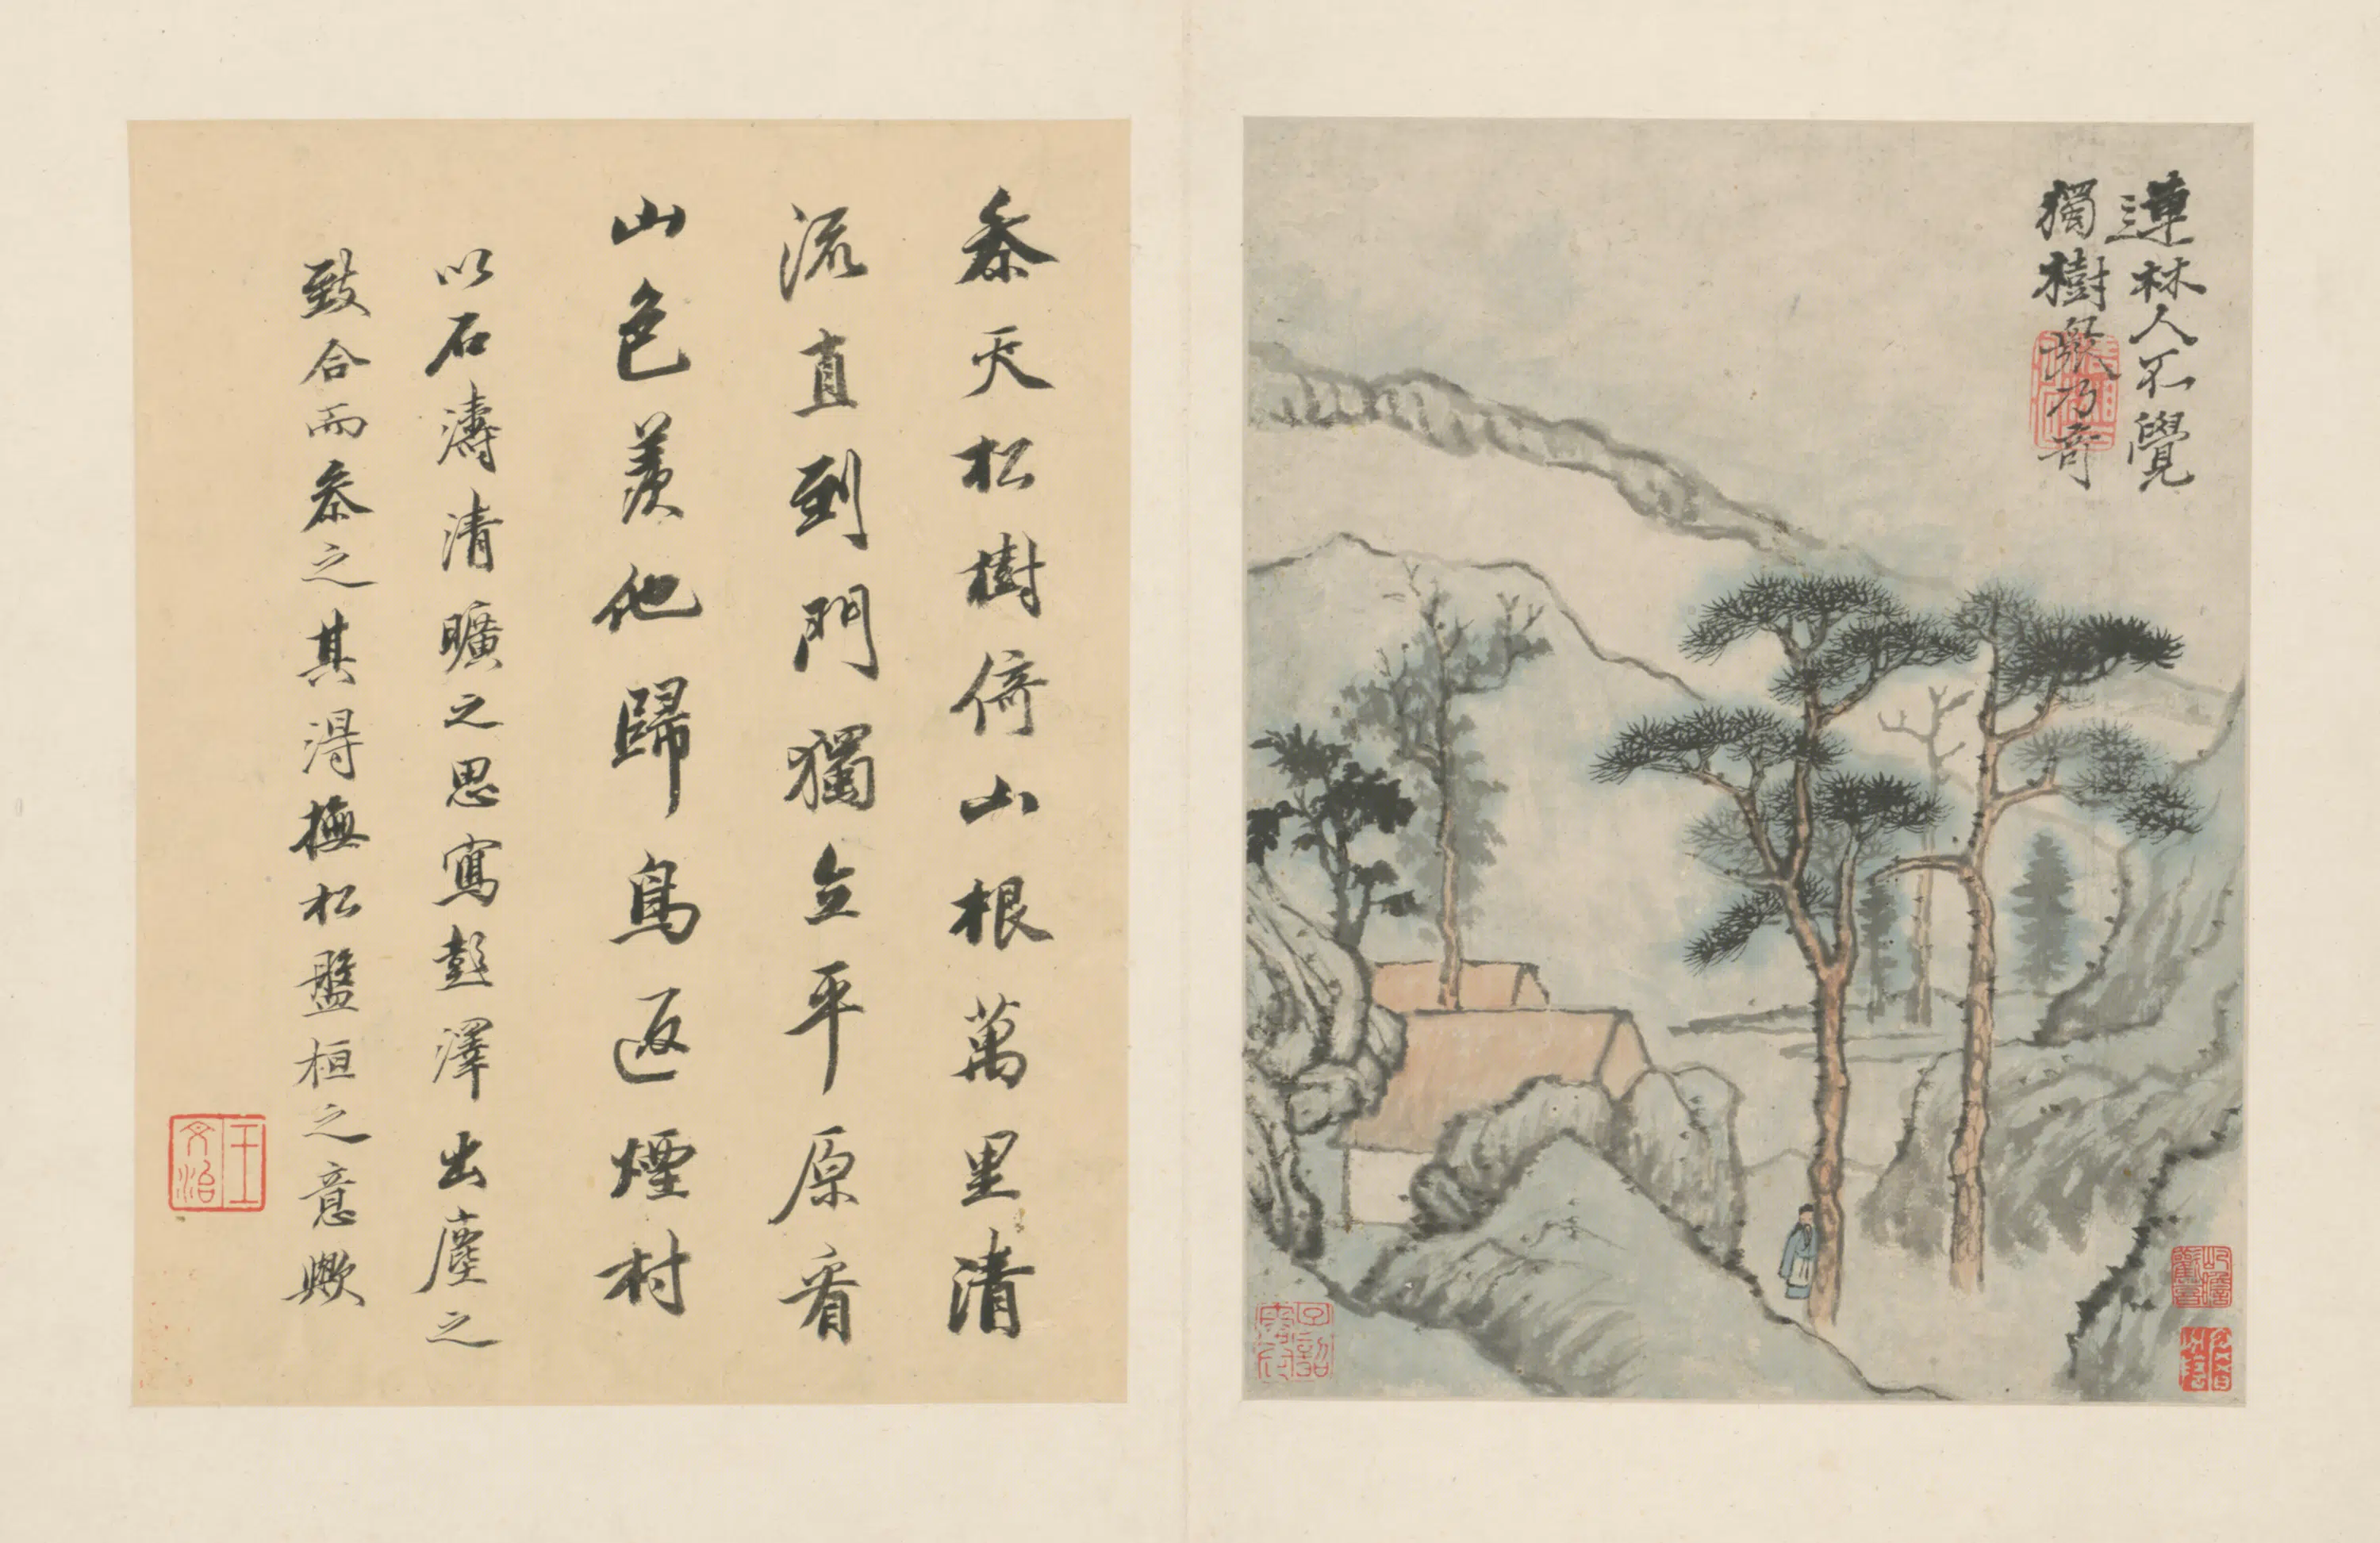 連林人不覺
獨樹眾乃奇
參天松樹倚山根萬里清
流直到門獨立平原看
山色羨他歸鳥返煙村
以石濤清曠之思寫彭澤出塵之
致合而參之其得撫松盤桓之意歟
王文治